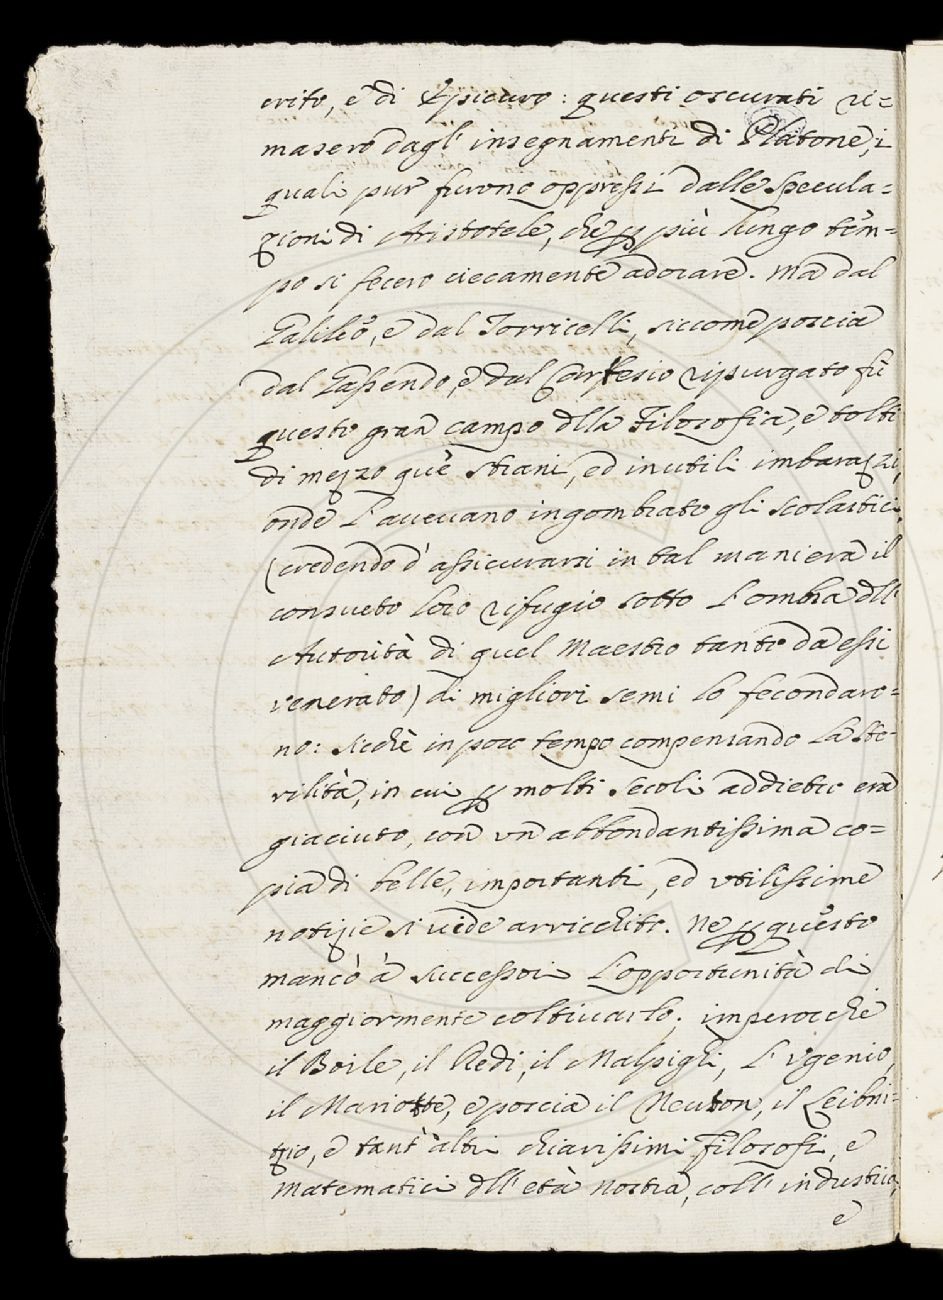 crito, e di Epicuro: questi oscurati ri=
masero dagl' insegnamenti di Platone, i
quali pur furono oppressi dalle specula=
zioni di Aristotele, che più lungo tem-
po si fecero ciecamente adorare. Ma dal
Galileo, e dal Torricelli, siccome poscia
dal Gassendo, e dal Cartesio ripurgato fù
questo gran campo dlla Filosofia, e tolti
di mezzo què strani, ed inutili imbarazzi,
onde l'avevano ingombrato gli scolastici,
(credendo d'assicurarsi in tal maniera il
consueto loro rifugio sotto l'ombra dll'
Autorità di quel Maestro tanto da essi
venerato) di migliori semi lo fecondaro=
no: sicchè in poco tempo compensando la ste-
rilità, in cui molti secoli addietro era
giaciuto, con vn abbondantissima co=
pia di belle, importanti, ed vtilissime
notizie si vede arricchito. Ne questo
mancò à successori l'opportunità di
maggiormente coltivarlo; imperocchè
il Boile, il Redi, il Malpighi, l'Vgenio,
il Mariotte, e poscia il Neuton, il Leibni-
tzio, e tant'altri chiarissimi Filosofi, e
Matematici dll'età nostra, coll'industria,
e